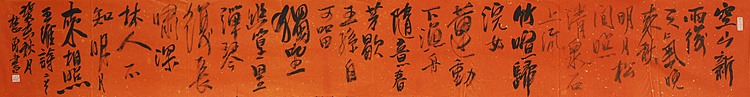 空山新
雨後
天氣晚
來秋
明月松
間照
清泉石
上流
竹喧歸
浣女
蓮動
下漁舟
隨意春
芳歇
王孫自
可留
獨坐
幽篁里
彈琴
復長
嘯深
林人不
知明月
來相照
王維詩二
秋月
書